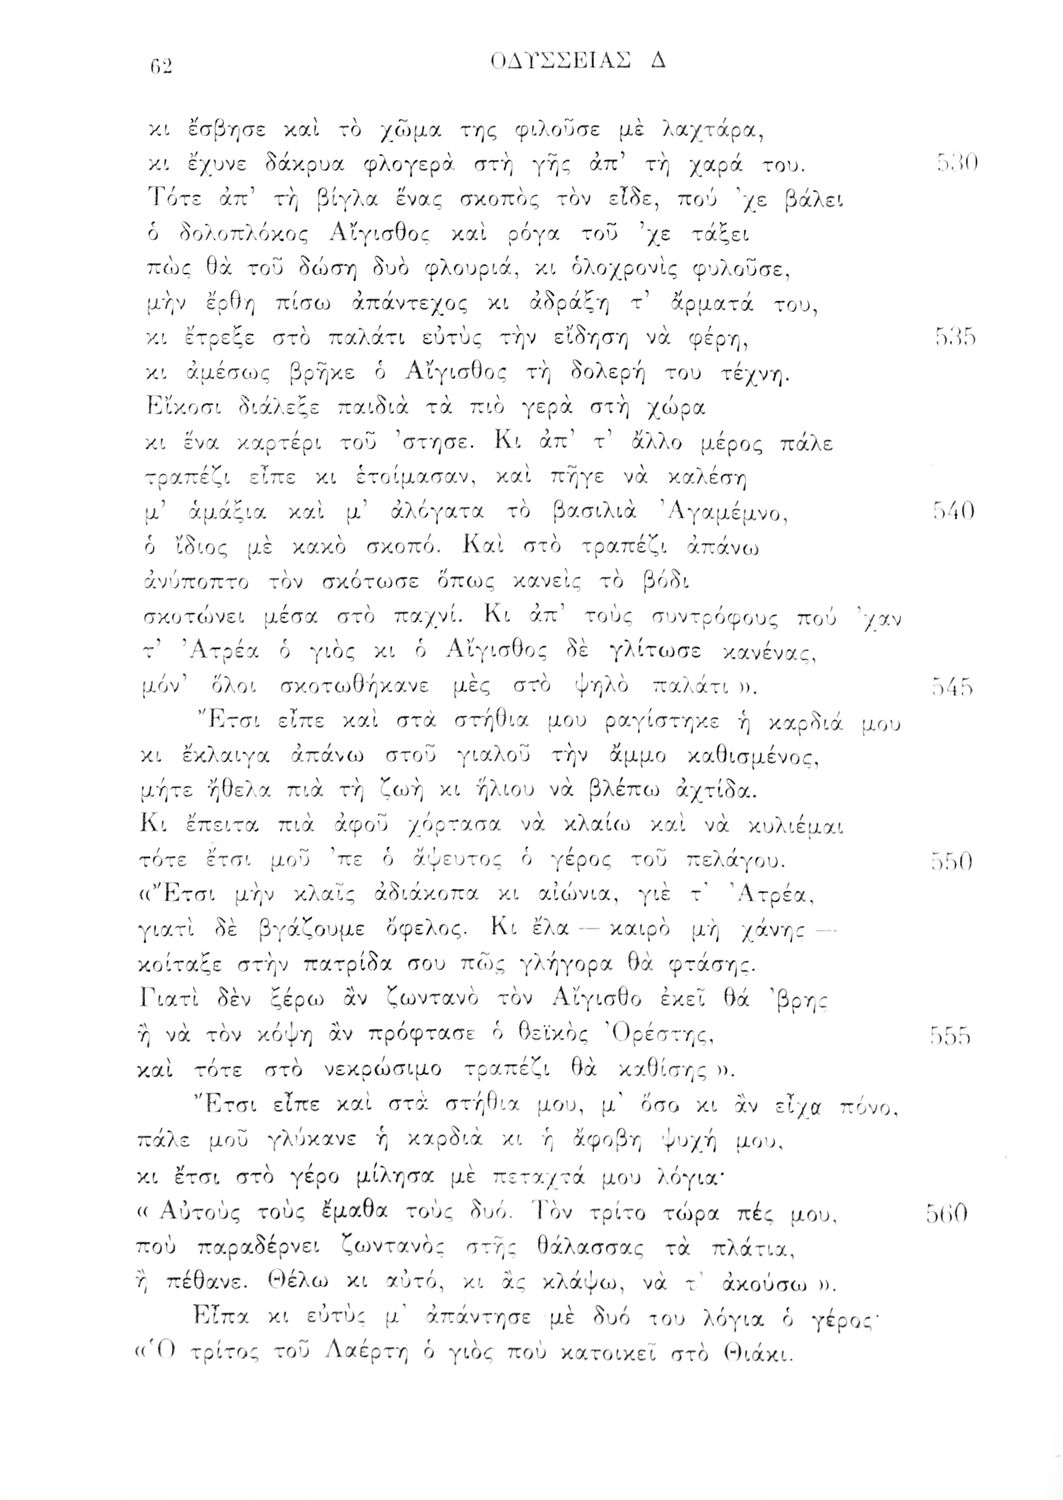 62 ΟΔΥΣΣΕΙΑΣ Δ
κι ἔσβησε καὶ τὸ χῶμα της φιλοῦσε μὲ λαχτάρα,
κι ἔχυνε δάκρυα φλογερὰ στὴ γῆς ἀπ’ τὴ χαρά του. 530
Τότε ἀπ’ τὴ βίγλα ἕνας σκοπὸς τὸν εἶδε, πού ’χε βάλει
ὁ δολοπλόκος Αἴγισθος καὶ ρόγα τοῦ ’χε τάξει
πὼς θὰ τοῦ δώση δυὸ φλουριά, κι ὁλοχρονὶς φυλοῦσε,
μὴν ἔρθη πίσω ἀπάντεχος κι ἀδράξη τ’ ἄρματά του,
κι ἔτρεξε στὸ παλάτι εὐτὺς τὴν εἴδηση νὰ φέρη, 535
κι ἀμέσως βρῆκε ὁ Αἴγισθος τὴ δολερή του τέχνη.
Εἴκοσι διάλεξε παιδιὰ τὰ πιὸ γερὰ στὴ χώρα
κι ἕνα καρτέρι τοῦ ’στησε. Κι ἀπ’ τ’ ἄλλο μέρος πάλε
τραπέζι εἶπε κι ἑτοίμασαν, καὶ πῆγε νὰ καλέση
μ’ ἁμάξια καὶ μ’ ἀλόγατα τὸ βασιλιὰ ’Αγαμέμνο, 540
ὁ ἴδιος μὲ κακὸ σκοπό. Καὶ στὸ τραπέζι ἀπάνω
ἀνύποπτο τὸν σκότωσε ὅπως κανεὶς τὸ βόδι
σκοτώνει μέσα στὸ παχνί. Κι ἀπ’ τοὺς συντρόφους πού ’χαν
τ’ ’Ατρέα ὁ γιὸς κι ὁ Αἴγισθος δὲ γλίτωσε κανένας,
μόν’ ὅλοι σκοτωθήκανε μὲς στὸ ψηλὸ παλάτι ». 545
Ἔτσι εἶπε καὶ στὰ στήθια μου ραγίστηκε ἡ καρδιά μου
κι ἔκλαιγα ἀπάνω στοῦ γιαλοῦ τὴν ἄμμο καθισμένος,
μήτε ἤθελα πιὰ τὴ ζωὴ κι ἥλιου νὰ βλέπω ἀχτίδα.
Κι ἔπειτα πιὰ ἀφοῦ χόρτασα νὰ κλαίω καὶ νὰ κυλιέμαι
τότε ἔτσι μοῦ ’πε ὁ ἄψευτος ὁ γέρος τοῦ πελάγου. 550
«Ἔτσι μὴν κλαῖς ἀδιάκοπα κι αἰώνια, γιὲ τ’ ’Ατρέα,
γιατὶ δὲ βγάζουμε ὄφελος. Κι ἔλα — καιρὸ μὴ χάνης —
κοίταξε στὴν πατρίδα σου πῶς γλήγορα θὰ φτάσης.
Γιατὶ δὲν ξέρω ἂν ζωντανὸ τὸν Αἴγισθο ἐκεῖ θά ’βρης
ἢ νὰ τὸν κόψη ἂν πρόφτασε ὁ θεϊκὸς ’Ορέστης, 555
καὶ τότε στὸ νεκρώσιμο τραπέζι θὰ καθίσης ».
Ἔτσι εἶπε καὶ στὰ στήθια μου, μ’ ὅσο κι ἂν εἶχα πόνο,
πάλε μοῦ γλύκανε ἡ καρδιὰ κι ἡ ἄφοβη ψυχή μου,
κι ἔτσι στὸ γέρο μίλησα μὲ πεταχτά μου λόγια·
« Αὐτοὺς τοὺς ἔμαθα τοὺς δυό. Τὸν τρίτο τώρα πές μου, 560
ποὺ παραδέρνει ζωντανὸς στῆς θάλασσας τὰ πλάτια,
ἢ πέθανε. Θέλω κι αὐτό, κι ἂς κλάψω, νὰ τ’ ἀκούσω ».
Εἶπα κι εὐτὺς μ’ ἀπάντησε μὲ δυό του λόγια ὁ γέρος·
«Ὁ τρίτος τοῦ Λαέρτη ὁ γιὸς ποὺ κατοικεῖ στὸ Θιάκι.